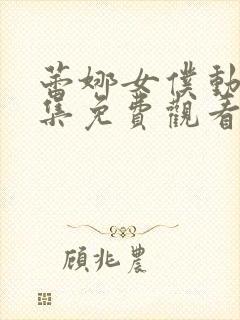 蕾娜女僕動
集免費觀看
顧兆農